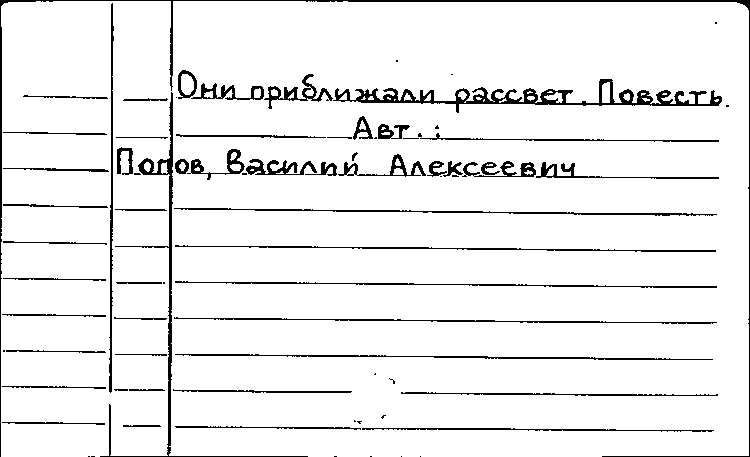 Они приближали рассвет. Повесть.
Авт.:
Попов, Василий Алексеевич